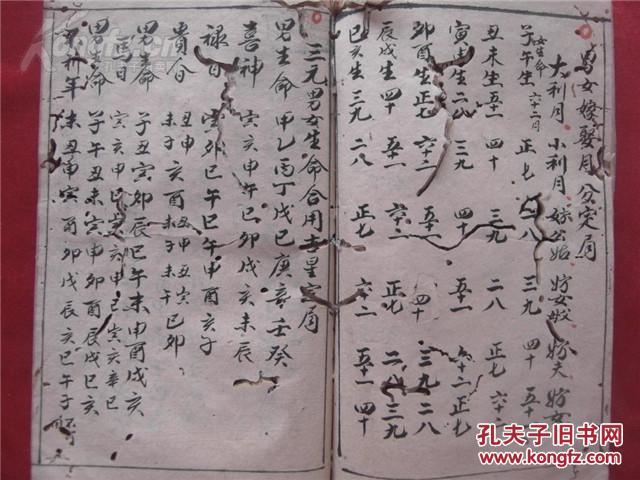 男女嫁娶月分定局
大利月 小利月 妨公姑 妨女父 妨夫 妨女
女生命
子午生 六十二月 正七 二八 三九 四十 五十一
丑未生 五十一 四十 三九 二八 正七 六十二
寅申生 二八 三九 四十 五十一 六十二 正七
卯酉生 正七 六十二 五十一 四十 三九 二八
辰戌生 四十 五十一 六十二 正七 二八 三九
巳亥生 三九 二八 正七 六十二 五十一 四十
三元男女生命合用吉星定局
男生命 甲乙丙丁戊己庚辛壬癸
喜神 寅亥申午巳卯戌亥未辰
禄日 寅卯巳午巳午申酉亥子
貴日
男生命 子丑寅卯辰巳午未申酉戌亥
馬日 寅亥申巳寅亥申巳寅亥
男命 子午丑未寅申卯酉辰戌巳亥
年 未丑申寅酉卯戌辰亥巳午子
孔夫子旧书网
www.kongfz.com